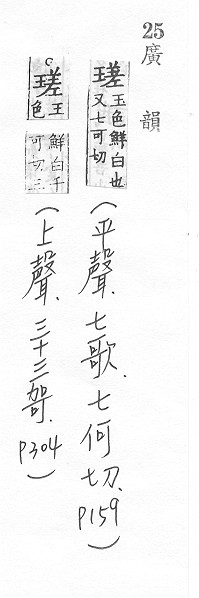 25
廣韻
瑳玉色鮮白也
又七可切
(平聲、七歌、七何切、P159)
瑳玉色鮮白千
可切二
(上聲、三十三哿、P304)